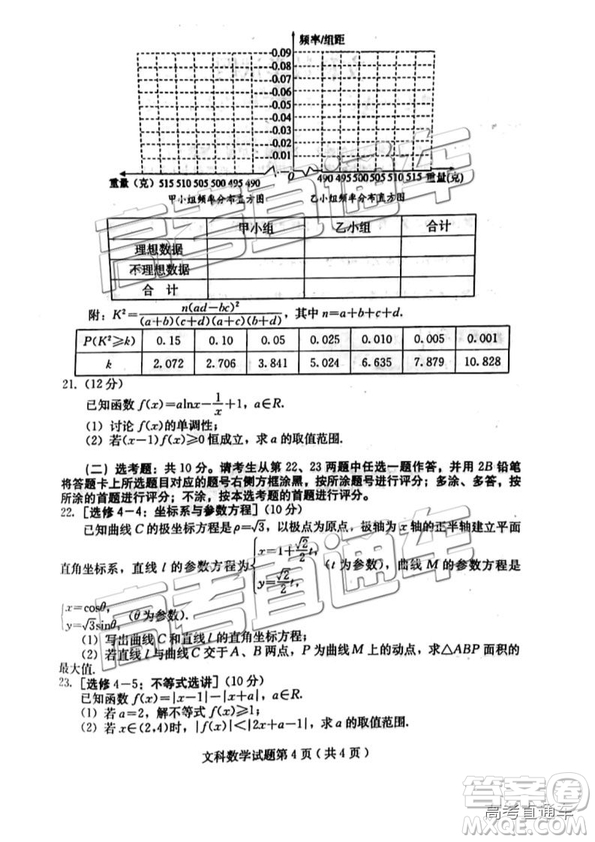 频率/组距
0.09
0.08
0.07
0.06
0.05
0.04
0.03
0.02
0.01
重量（克）515 510 505 500 495 490 0 490 495 500 505 510 515 重量(克)
甲小组频率分布直方图 乙小组频率分布直方图
甲小组 乙小组 合计
理想数据
不理想数据
合 计
附：K²=n(ad−bc)²/(a+b)(c+d)(a+c)(b+d)，其中 n=a+b+c+d.
P(K²⩾k) 0.15 0.10 0.05 0.025 0.010 0.005 0.001
k 2.072 2.706 3.841 5.024 6.635 7.879 10.828
21.（12分）
已知函数 f(x)=alnx−1/x+1，a∈R.
（1）讨论 f(x)的单调性；
（2）若(x−1)f(x)⩾0 恒成立，求 a 的取值范围.
（二）选考题：共 10 分。请考生从第 22、23 两题中任选一题作答，并用 2B 铅笔
将答题卡上所选题目对应的题号右侧方框涂黑，按所涂题号进行评分；多涂、多答，按
所涂的首题进行评分；不涂，按本选考题的首题进行评分。
22.［选修 4−4：坐标系与参数方程］（10 分）
已知曲线 C 的极坐标方程是ρ=√3，以极点为原点，极轴为 x 轴的正半轴建立平面
直角坐标系，直线 l 的参数方程为{x=1+√2/2t, y=√2/2t,（t 为参数），曲线 M 的参数方程是
{x=cosθ, y=√3sinθ,（θ为参数）.
（1）写出曲线 C 和直线 l 的直角坐标方程；
（2）若直线 l 与曲线 C 交于 A、B 两点，P 为曲线 M 上的动点，求△ABP 面积的
最大值.
23.［选修 4−5：不等式选讲］（10 分）
已知函数 f(x)=|x−1|−|x+a|，a∈R.
（1）若 a=2，解不等式 f(x)>x+2；
（2）若 x∈(2,4)时，|f(x)|<|2x+a−1|，求 a 的取值范围.
文科数学试题第 4 页（共 4 页）
高考直通车
高考直通车
答案圈
高考直通车
MXQE.COM